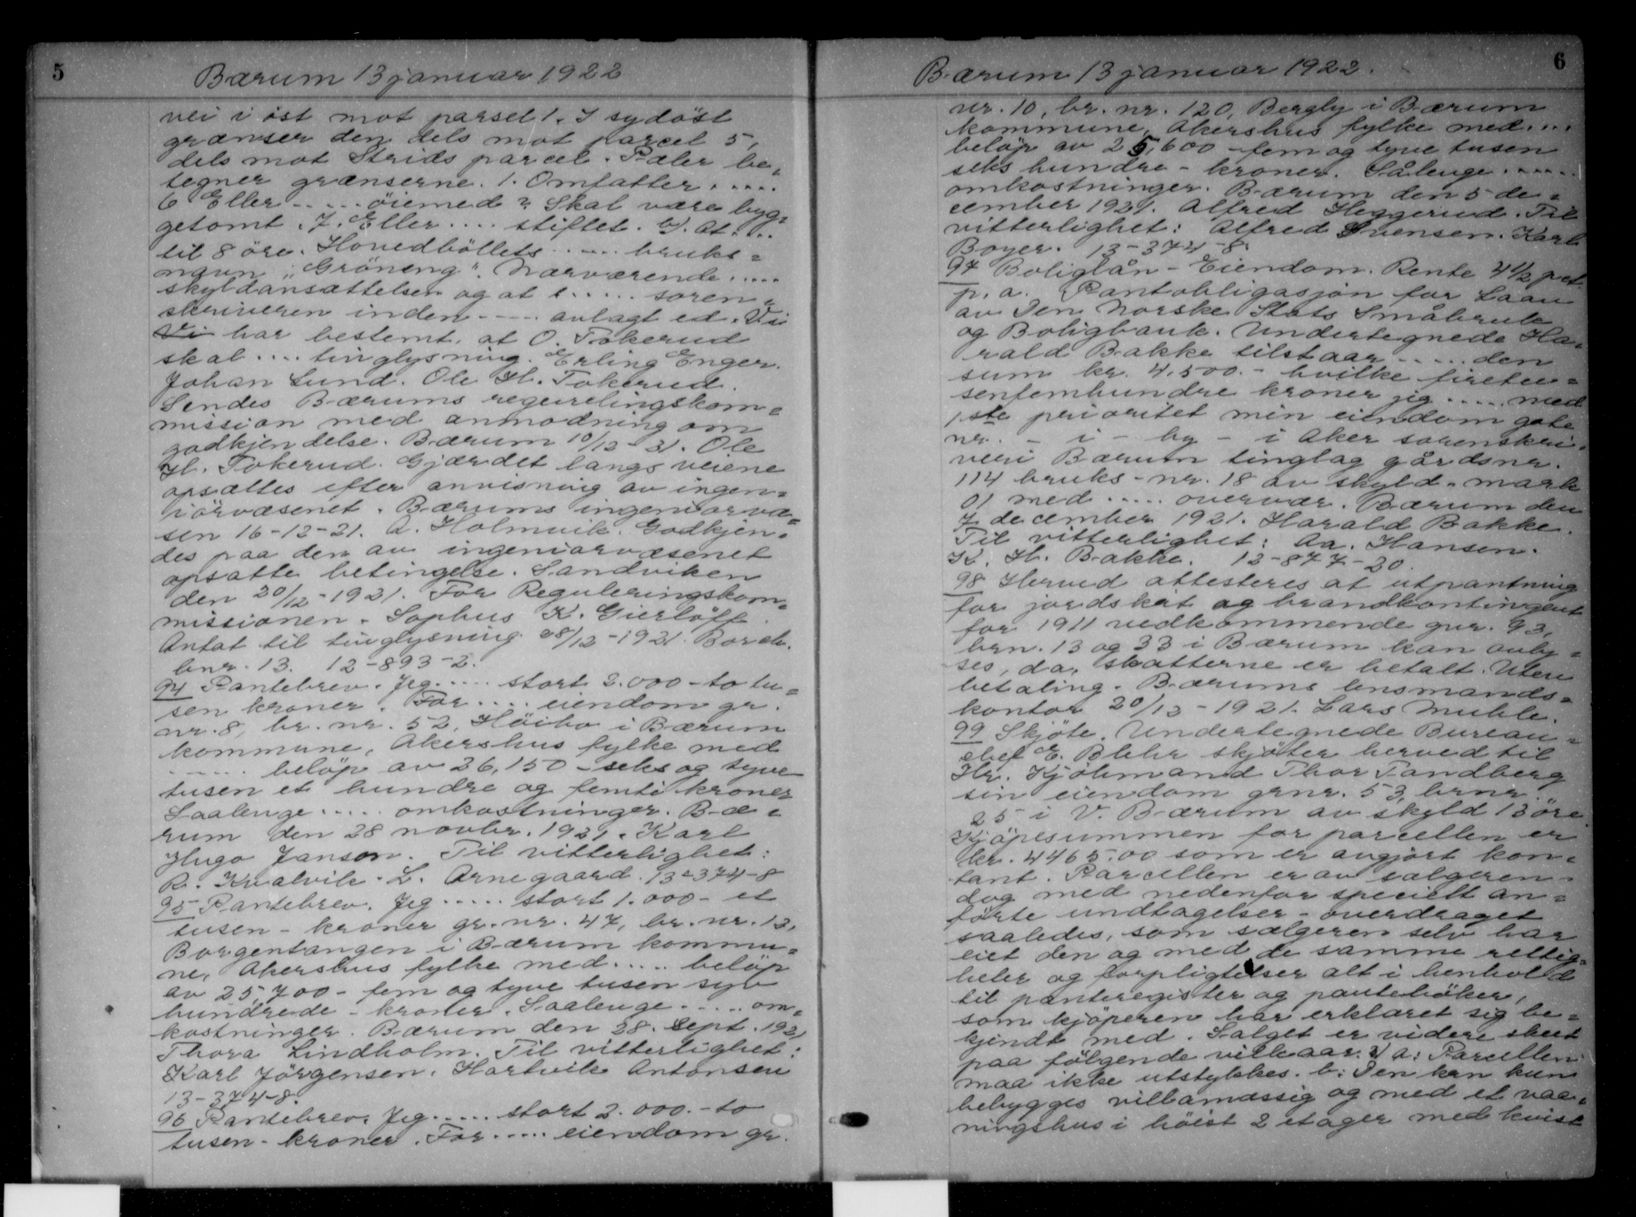 5
Bærum 13 januar 1922
vei i øst mot parsel 1. I sydöst
grænser den dels mot parcel 5,
dels mot Strids parcel. Pæler be=
tegner grænserne. 1. Omfatter.....
6 Eller ..... öiemed? Skal være byg=
getomt. 7. Eller .... stiftet. 9. At....
til 8 öre. Hovedböllets ..... bruks=
navn "Gröneng". Nærværende.....
skyldansættelsen og at 1..... soren=
skriveren inden .... avlagt ed. Vi
Vi har bestemt, at O. Tokerud
skal .... tinglysning. Erling Enger.
Johan Lund. Ole H. Tokerud.
Sendes Bærums regurelingskom=
mission med anmodning om
godkjendelse. Bærum 10/12-21. Ole
H. Tokerud. Gjærdet langs veiene
opsættes efter anvisning av ingen=
iörvæsenet. Bærums ingeniörvæ=
sen 16-12-21. A. Holmvik. Godkjen=
des paa den av ingeniörvæsenet
opsatte betingelse. Sandviken
den 20/12-1921. For Reguleringskom=
missionen. Sophus K. Gierlöff.
Antat til tinglysning 28/12-1921. Borch.
bnr. 13. 12-893-2.
94 Pantebrev. Jeg .... stort 2.000 - to tu=
sen kroner. For .... eiendom gr.
nr. 8, br. nr. 52, Höibo i Bærum
kommune, Akershus fylke med
..... beløp av 26,150 - seks og tyve
tusen et hundre og femti kroner
Saalenge .... omkostninger. Bæ=
rum den 28 novbr. 1921. Karl
Hugo Janson. Til vitterlighet:
R. Kvalvik. L. Arnegaard. 13-374-8
95 Pantebrev. Jeg ..... stort 1.000 - et
tusen - kroner gr. nr. 47, br. nr. 12,
Borgentangen i Bærum kommu=
ne, Akershus fylke med .... beløp
av 25,700 - fem og tyve tusen syv
hundrede - kroner. Saalenge .... om=
kostninger. Bærum den 28. Sept. 1921
Thora Lindholm. Til vitterlighet:
Karl Jörgensen. Hartvik Antonsen
13-374-8.
96 Pantebrev. Jeg ..... stort 2.000. - to
tusen - kroner. For ..... eiendom gr.
6
Bærum 13 januar 1922.
nr. 10, br. nr. 120, Bergly i Bærum
kommune, Akershus fylke med....
beløp av 25,600 - fem og tyve tusen
seks hundre - kroner. Sålenge .....
omkostninger. Bærum den 5 de=
cember 1921. Alfred Heggerud. Til
vitterlighet: Alfred Svensen. Karl
Boyer. 13-374-8.
97 Boliglån - Eiendom. Rente 4 1/2 pct
p. a. Pantobligasjon for Laan
av Den Norske Stats Småbruk
og Boligbank. Undertegnede Ha=
rald Bakke tilstaar ..... den
sum kr. 4,500.- hvilke firetu=
senfemhundre kroner jeg ..... med
1ste prioritet min eiendom gate
nr. - i - by - i Aker sorenskri=
veri Bærum tinglag gårdsnr.
114 bruks-nr. 18 av skyld-mark
01 med ..... overvær. Bærum den
7 december 1921. Harald Bakke.
Til vitterlighet: Aa. Hansen.
K. H. Bakke. 12-877-20.
98 Herved attesteres at utpantning
for jordskat og brandkontingent
for 1911 vedkommende gnr. 93,
brn. 13 og 33 i Bærum kan avly=
ses, da skatterne er betalt. Uten
betaling. Bærums lensmands=
kontor 20/12-1921. Lars Muhle.
99 Skjöte. Undertegnede Bureau=
chef E. Blehr skjöter herved til
Hr. Kjöbmand Thor Tandberg
sin eiendom grnr. 53, brnr.
25 i V. Bærum av skyld 13 öre.
Kjöpesummen for parcellen er
kr. 4465.00 som er avgjort kon=
tant. Parcellen er av sælgeren -
dog med nedenfor specielt an=
förte undtagelser - overdraget
saaledes, som sælgeren selv har
eiet den og med de samme rettig=
heter og forpligtelser alt i henhold
til panteregister og pantebøker,
som kjöperen har erklæret sig be=
kjendt med. Salget er videre skeet
paa fölgende vilkaar: a: Parcellen
maa ikke utstykkes. b: Den kan kun
bebygges villamæssig og med et vaa=
ningshus i höist 2 etager med kvist